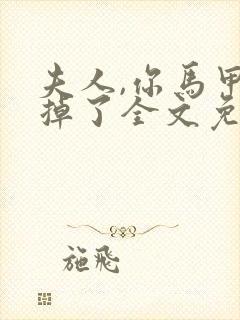 夫人,你馬甲
掉了全文免
施飛